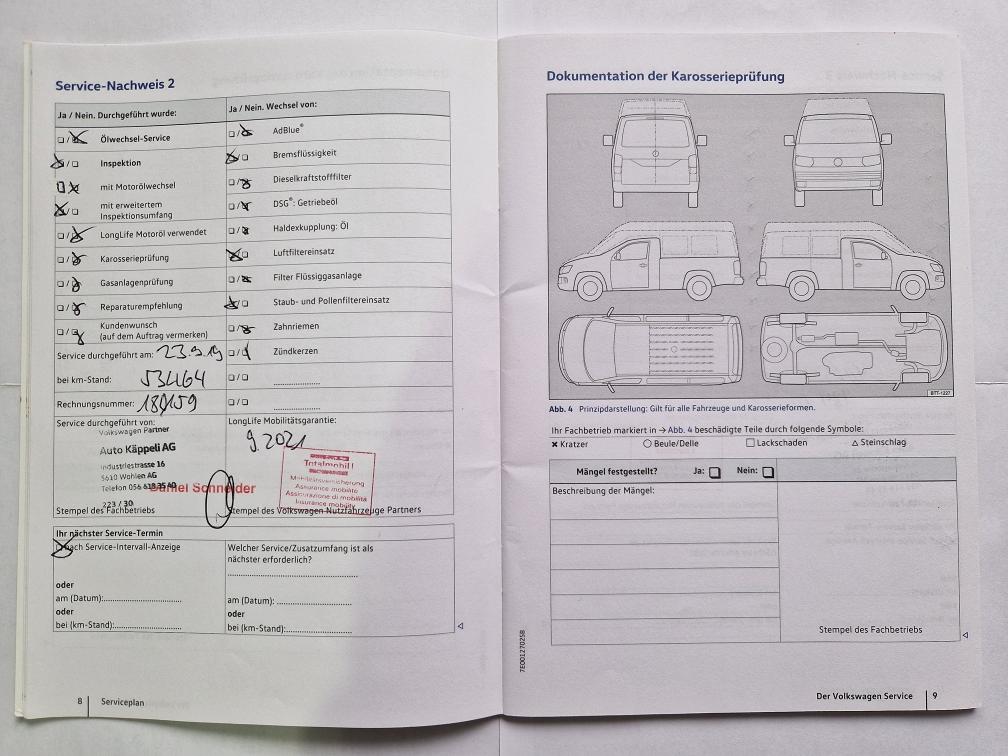 Service-Nachweis 2
Ja / Nein. Durchgeführt wurde:
Ölwechsel-Service
Inspektion
mit Motorölwechsel
mit erweitertem
Inspektionsumfang
LongLife Motoröl verwendet
Karosserieprüfung
Gasanlagenprüfung
Reparaturempfehlung
Kundenwunsch
(auf dem Auftrag vermerken)
Service durchgeführt am: 23.9.19
bei km-Stand: 53464
Rechnungsnummer: 180159
Service durchgeführt von:
Volkswagen Partner
Auto Käppeli AG
Industriestrasse 16
5610 Wohlen AG
Telefon 056
Daniel Schneider
223 / 30
Stempel des Fachbetriebs
Ja / Nein. Wechsel von:
AdBlue®
Bremsflüssigkeit
Dieselkraftstofffilter
DSG®: Getriebeöl
Haldexkupplung: Öl
Luftfiltereinsatz
Filter Flüssiggasanlage
Staub- und Pollenfiltereinsatz
Zahnriemen
Zündkerzen
LongLife Mobilitätsgarantie:
9.2021
Totalmobil!
Mobilitätsversicherung
Assurance mobilité
Assicurazione di mobilità
Insurance mobility
Stempel des Volkswagen Nutzfahrzeuge Partners
Ihr nächster Service-Termin
nach Service-Intervall-Anzeige
oder
am (Datum):
oder
bei (km-Stand):
Welcher Service/Zusatzumfang ist als
nächster erforderlich?
am (Datum):
oder
bei (km-Stand):
8 Serviceplan
Dokumentation der Karosserieprüfung
BTT-1227
Abb. 4 Prinzipdarstellung: Gilt für alle Fahrzeuge und Karosserieformen.
Ihr Fachbetrieb markiert in → Abb. 4 beschädigte Teile durch folgende Symbole:
× Kratzer ○ Beule/Delle □ Lackschaden △ Steinschlag
Mängel festgestellt? Ja: Nein:
Beschreibung der Mängel:
Stempel des Fachbetriebs
7E0012702SB
Der Volkswagen Service 9